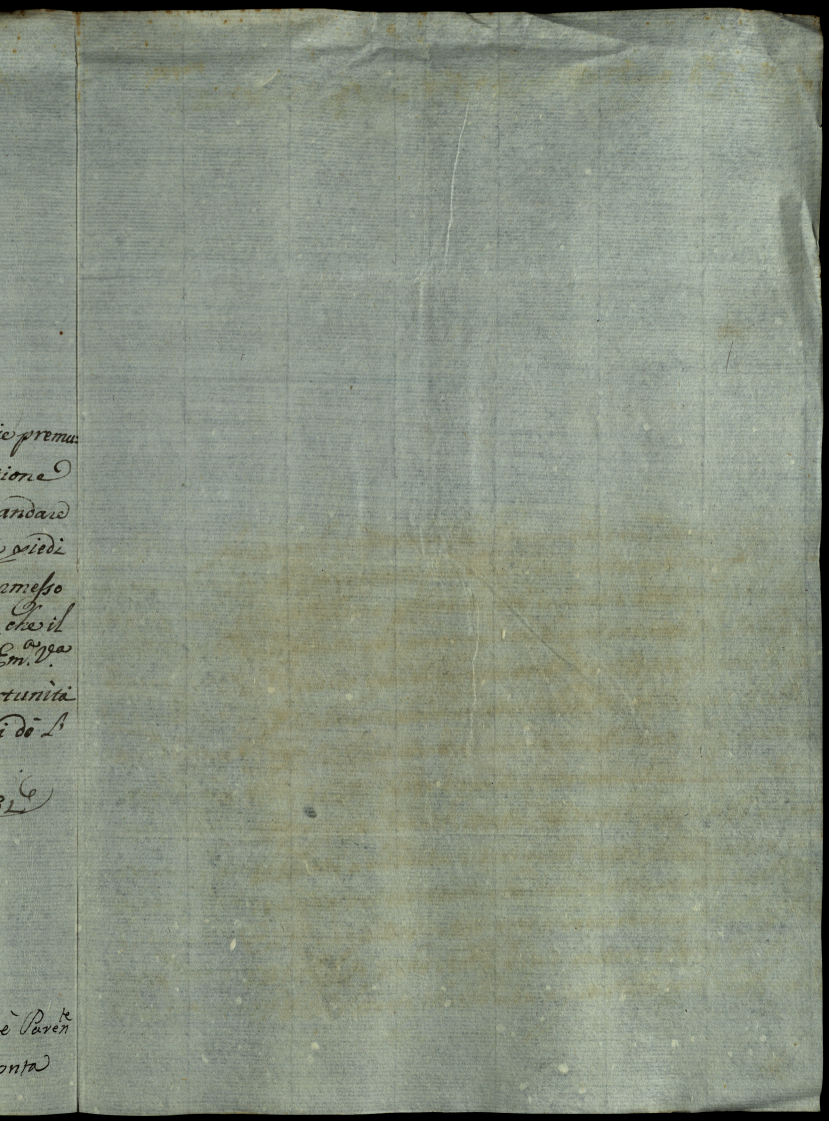 ie premu:
ione
andare
piedi
mmesso
che il
Em.ª V.ª
rtunità
i dò L'
è Paren.te
onta